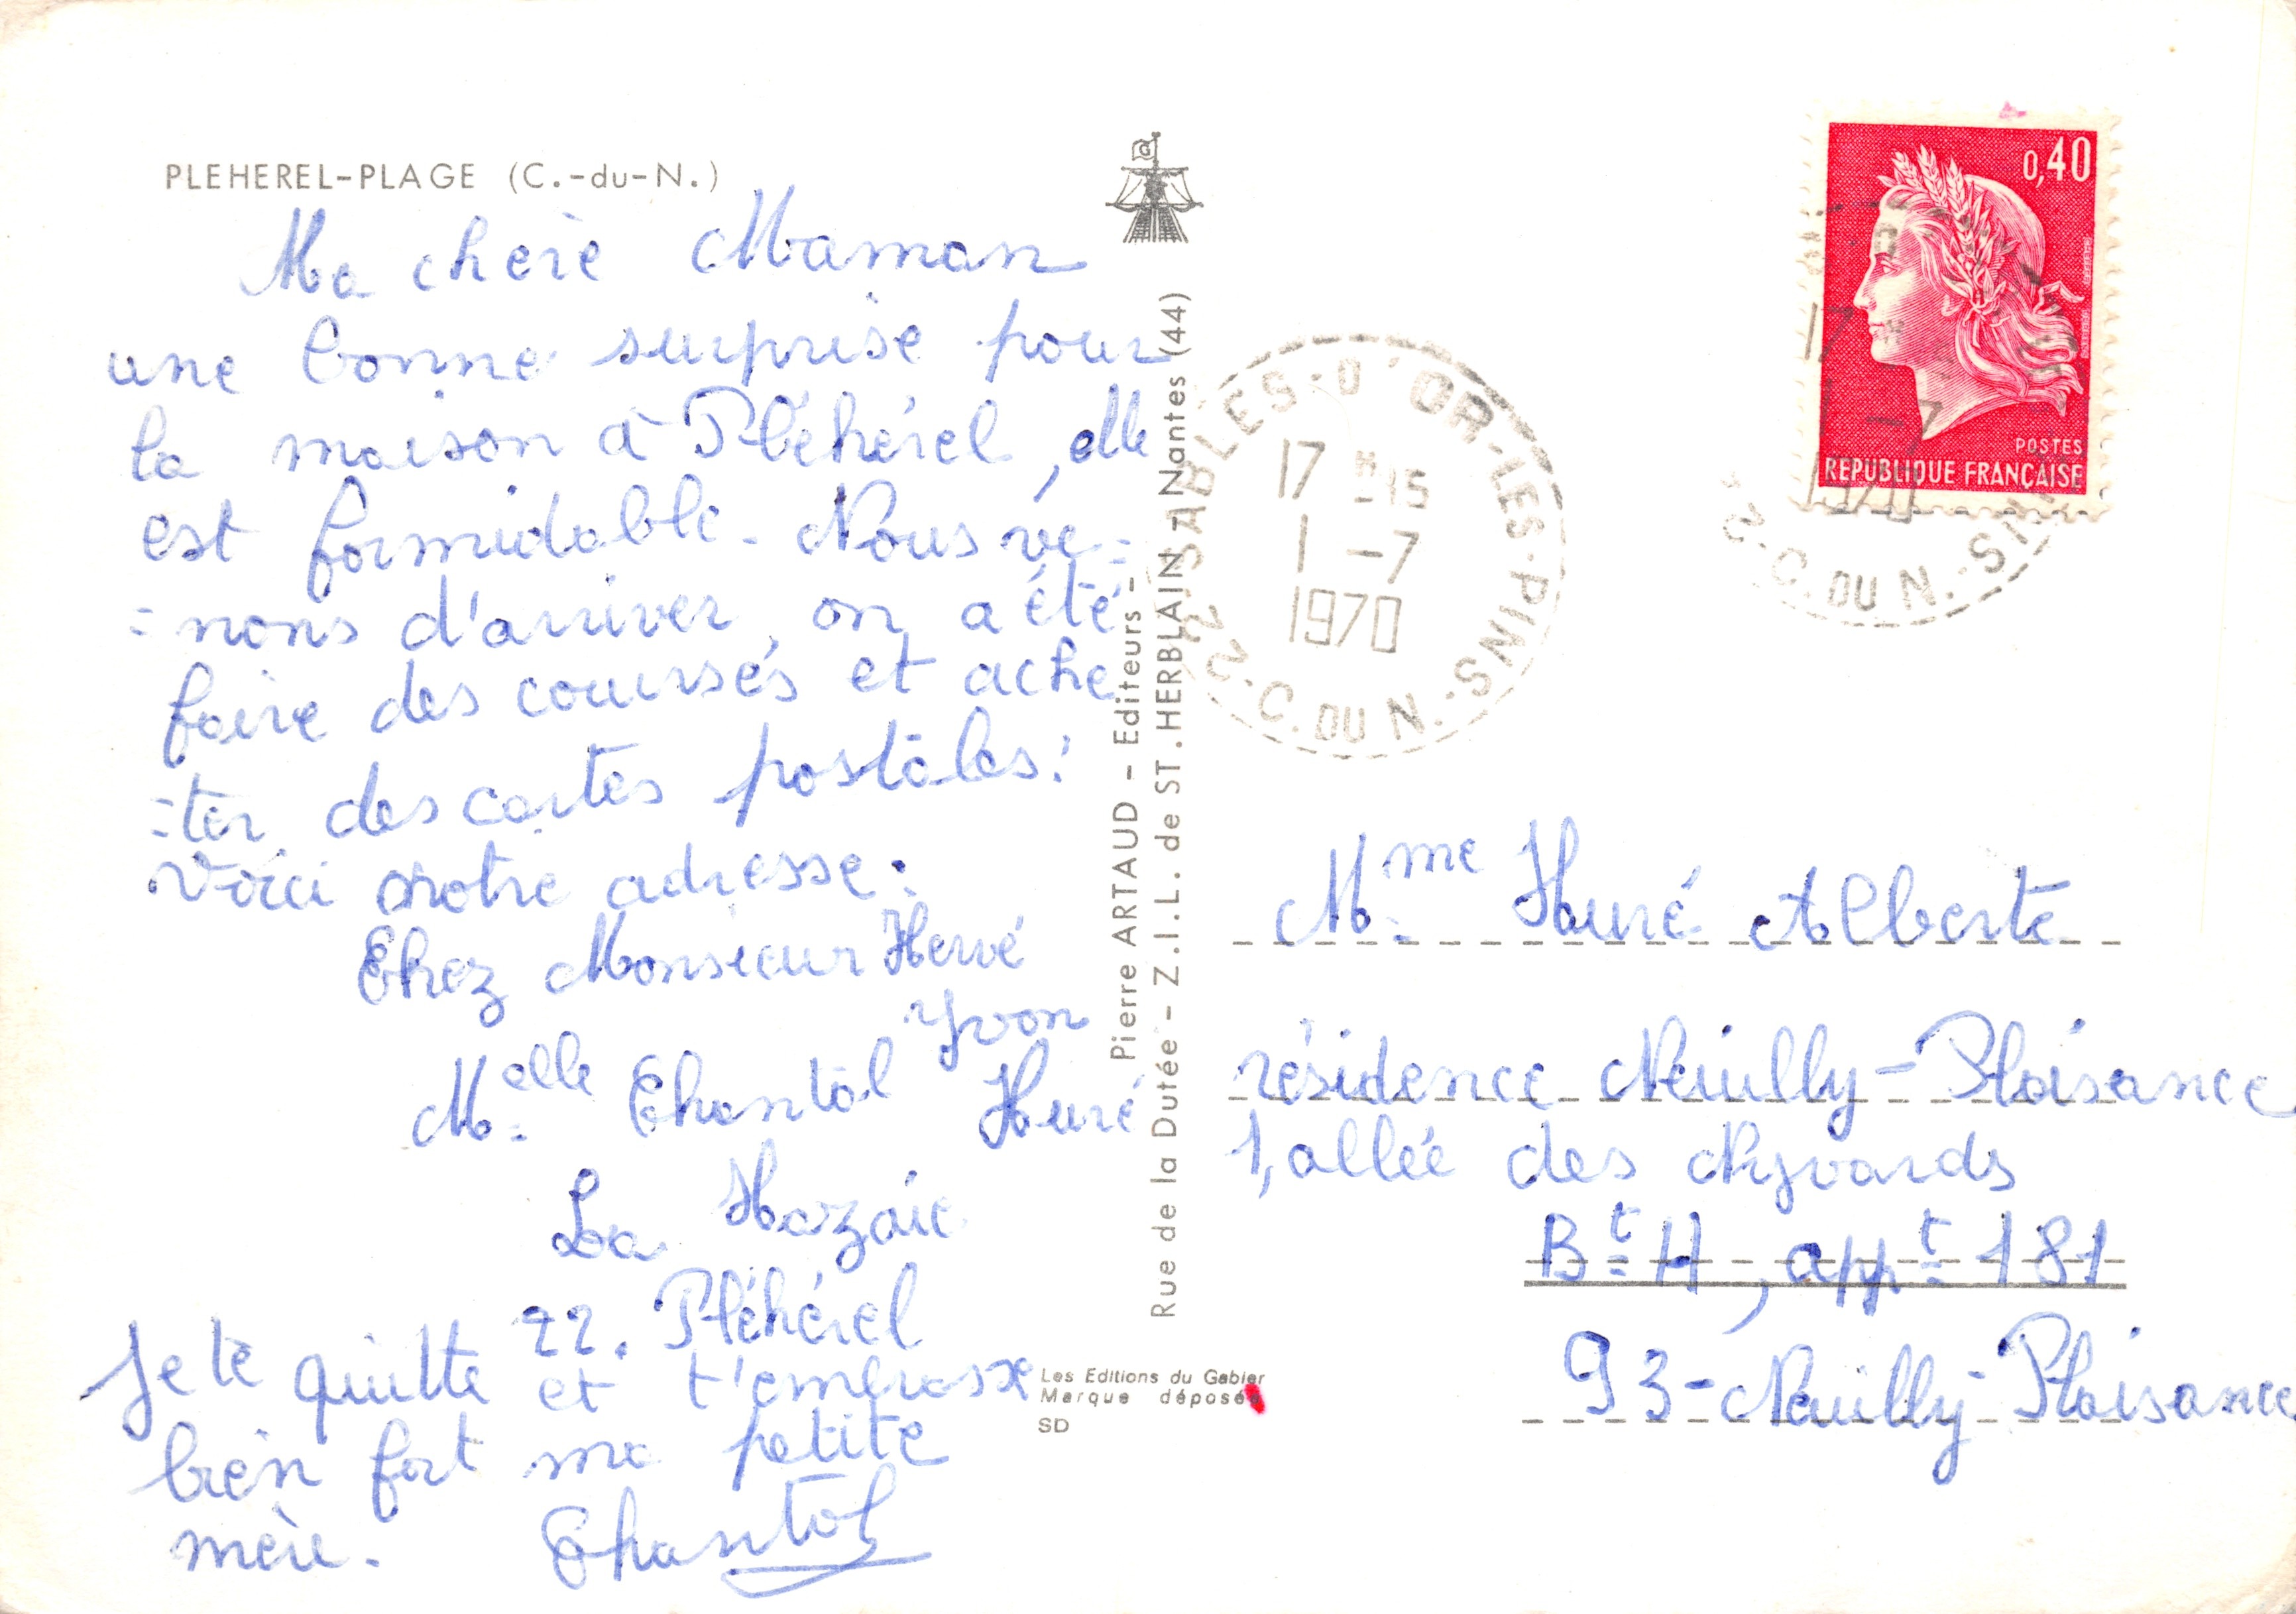 PLEHEREL-PLAGE (C.-du-N.)
Ma chère Maman
une bonne surprise pour
la maison à Pléhérel, elle
est formidable. Nous ve=
=nons d'arriver, on a été
faire des courses et ache
=ter des cartes postales!
Voici notre adresse:
Chez Monsieur Hervé
Yvon
Melle Chantal Huré
La
22. Pléhérel
Je te quitte et t'embrasse
bien fort ma petite
mère. Chantal
Pierre ARTAUD - Editeurs -
Rue de la Dutée - Z.I.L. de ST.HERBLAIN - Nantes (44)
Les Editions du Gabier
Marque déposée
SD
22-SABLES-D'OR-LES-PINS
17 H 15
1 -7
1970
C. DU N.
0,40
POSTES
REPUBLIQUE FRANÇAISE
17
1 -7
1970
22. C. DU N.
Mme Huré Alberte
résidence Neuilly-Plaisance
1, allée des
Bt H, appt 181
93-Neuilly-Plaisance